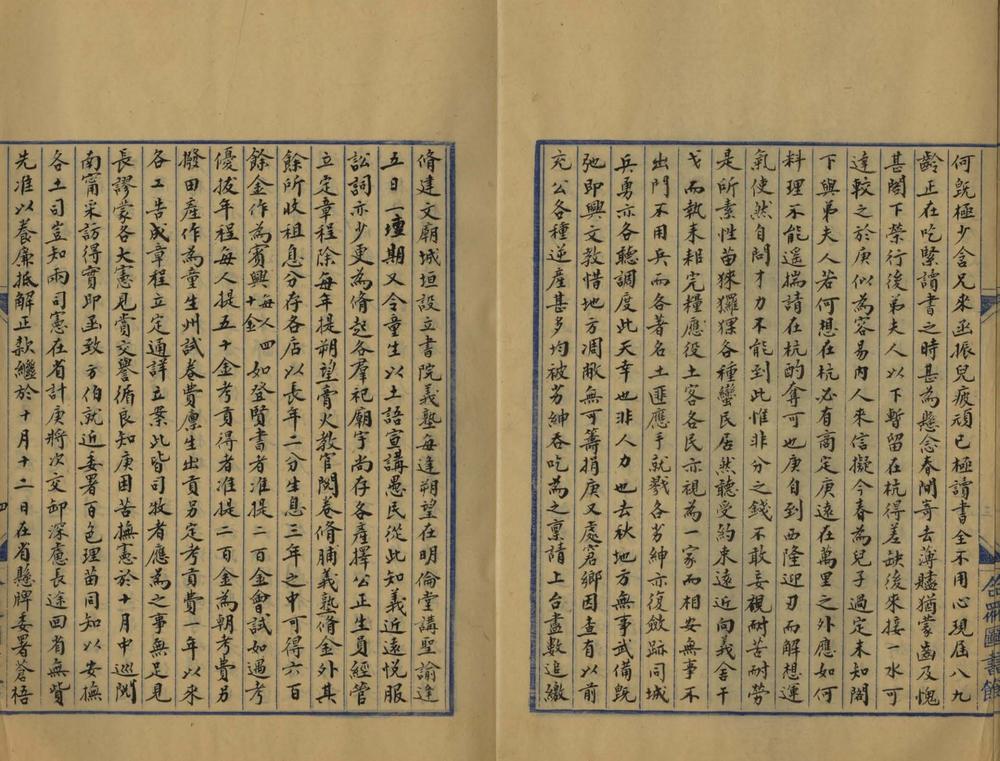 何既極少含兄來函振兒疲頑已極讀書全不用心現屆八九
齡正在吃緊讀書之時甚為懸念春間寄去薄贐猶蒙齒及愧
甚閣下榮行後弟夫人以下暫留在杭得差缺後來接一水可
達較之於庚似為容易內人來信擬今春為兒子過定未知閣
下與弟夫人若何想在杭必有商定庚遠在萬里之外應如何
料理不能遙揣請在杭酌奪可也庚自到西隆迎刃而解想運
氣使然自問才力不能到此惟非分之錢不敢妄視耐苦耐勞
是所素性苗猍玀猓各種蠻民居然聽受約束遠近向義舍干
戈而執耒耜完糧應役土客各民亦視為一家而相安無事不
出門不用兵而各著名土匪應手就戮各劣紳亦復斂跡同城
兵勇亦各聽調度此天幸也非人力也去秋地方無事武備既
弛即興文教惜地方凋敝無可籌捐庚又處窘鄉因查有以前
充公各種逆產甚多均被劣紳吞吃為之稟請上台盡數追繳
脩建文廟城垣設立書院義塾每逢朔望在明倫堂講聖諭逢
五日一壇期又令童生以土語宣講愚民從此知義近遠悅服
訟詞亦少更為脩起各羣祀廟宇尚存各產擇公正生員經管
立定章程除每年提朔望膏火教官閱卷脩脯義塾脩金外其
餘所收租息分存各店以長年二分生息三年之中可得六百
餘金作為賓興每人四十金如登賢書者准提二百金會試如遇考
優拔年程每人提五十金考貢得者准提二百金為朝考費另
撥田產作為童生州試卷費廩生出貢另定考貢費一年以來
各工告成章程立定通詳立案此皆司牧者應為之事無足見
長謬蒙各大憲見賞交譽循良知庚困苦撫憲於十月中巡閱
南甯采訪得實即函致方伯就近委署百色理苗同知以安撫
各土司豈知兩司憲在省計庚將次交卸深慮長途回省無貲
先准以養廉抵解正款繼於十月十二日在省懸牌委署蒼梧